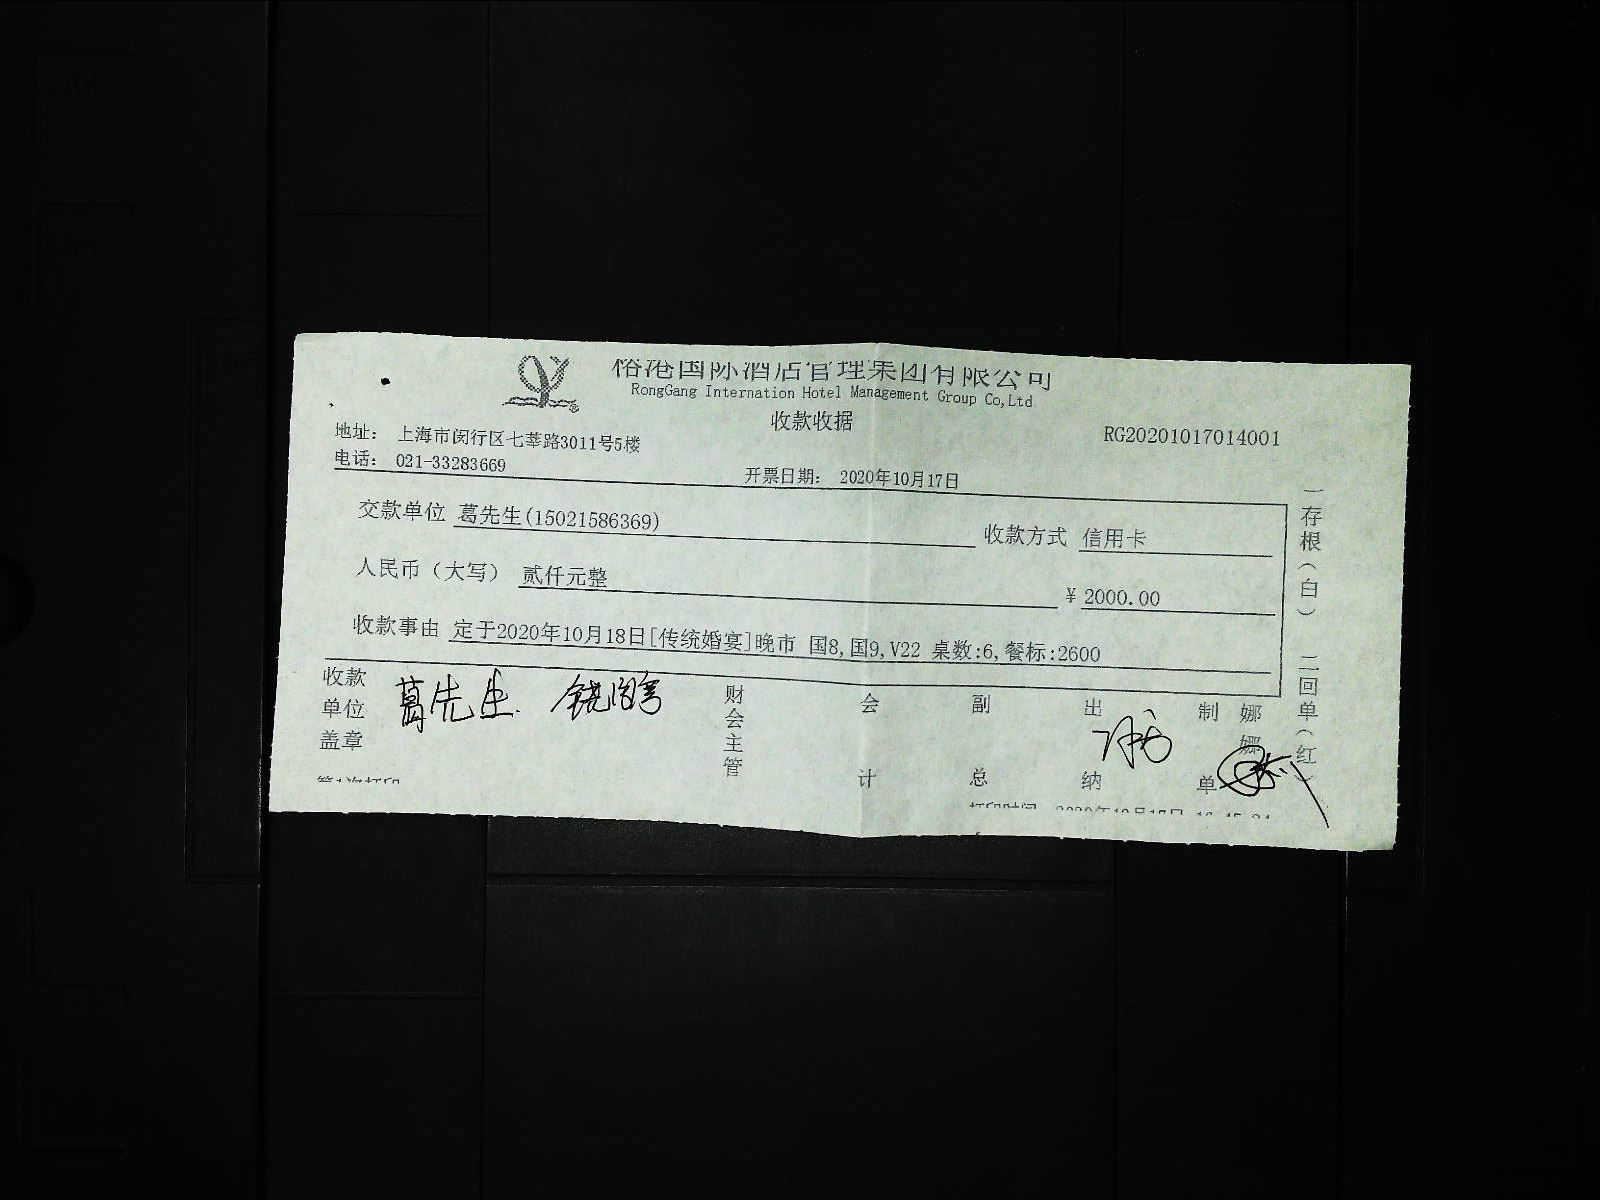 榕港国际酒店管理集团有限公司
RongGang Internation Hotel Management Group Co,Ltd
收款收据
地址： 上海市闵行区七莘路3011号5楼
RG20201017014001
电话： 021-33283669
开票日期： 2020年10月17日
交款单位 葛先生(15021586369)
收款方式 信用卡
人民币（大写） 贰仟元整
￥2000.00
收款事由 定于2020年10月18日[传统婚宴]晚市 国8,国9,V22 桌数:6,餐标:2600
一存根（白） 二回单（红）
收款单位盖章
葛先生.
财会主管
会计
副总
出纳
制单
娜娜
第1次打印
打印时间 2020年10月17日